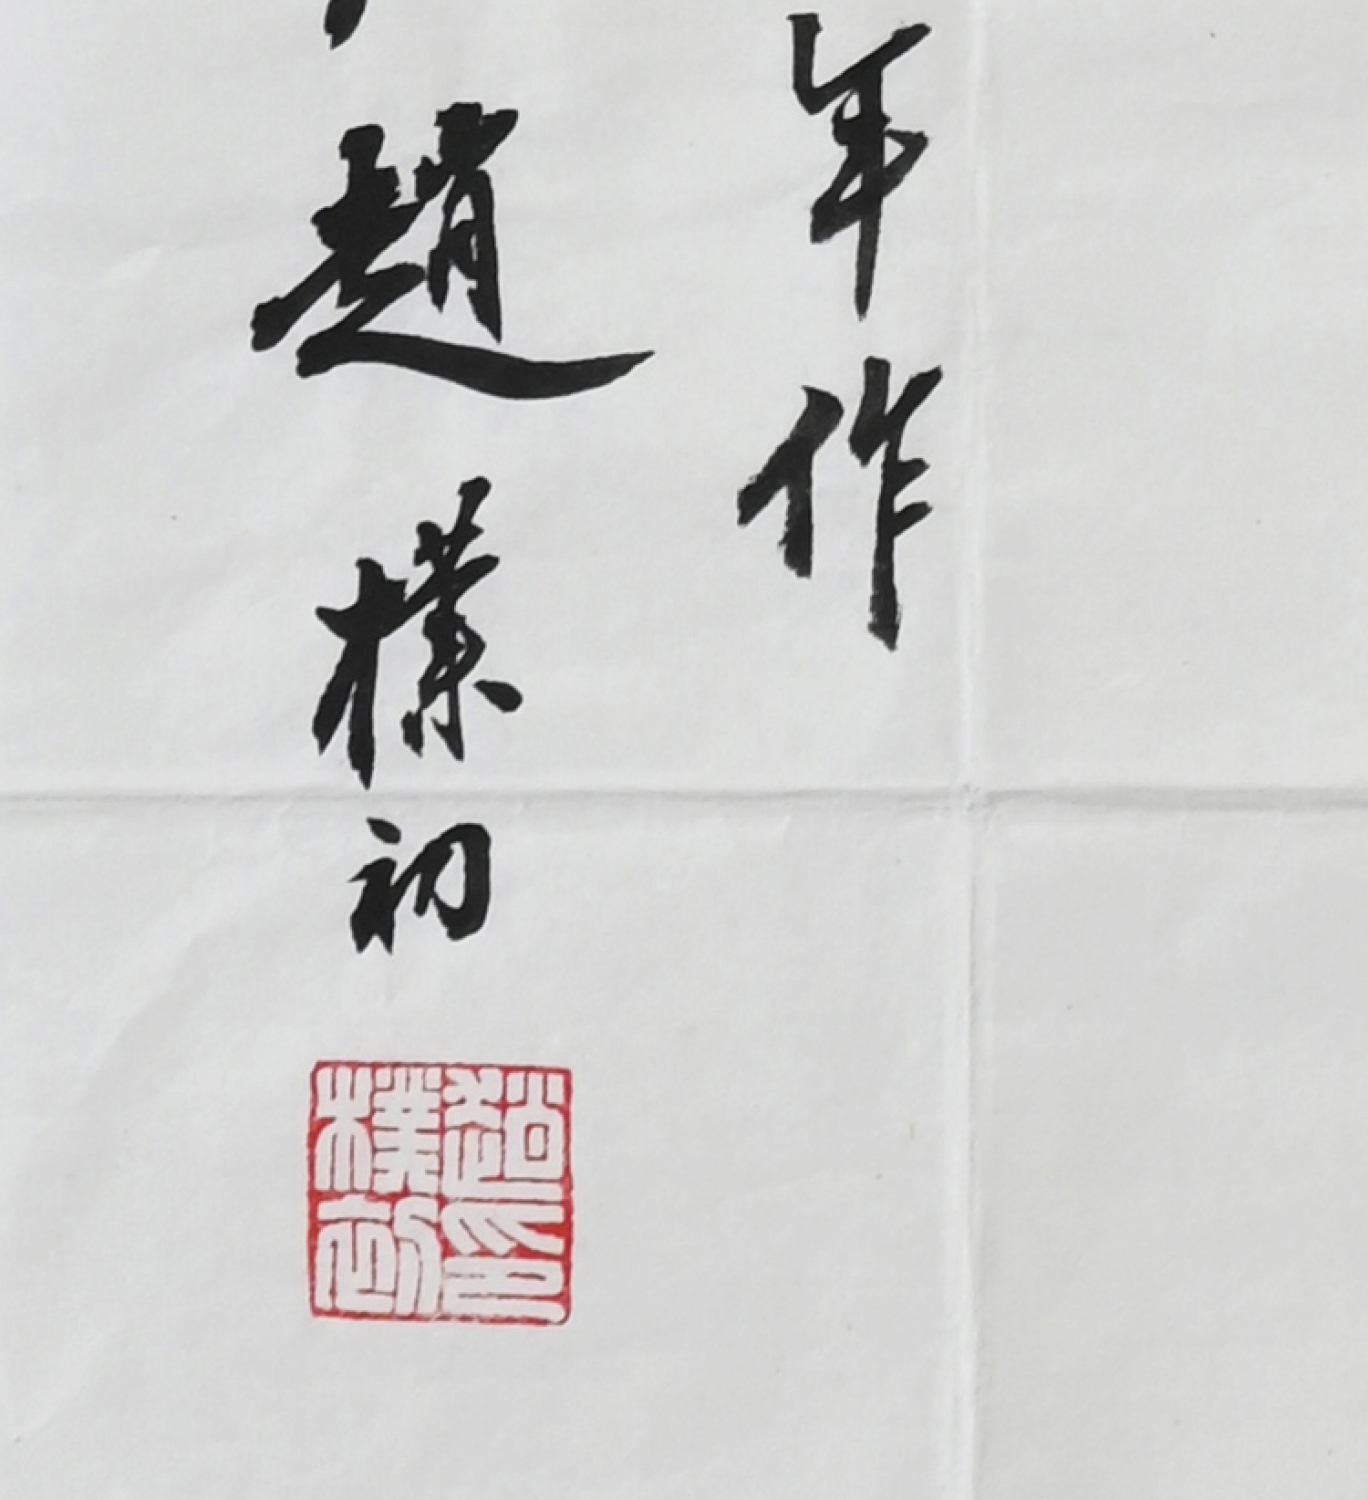 年作
趙樸初
趙印樸初